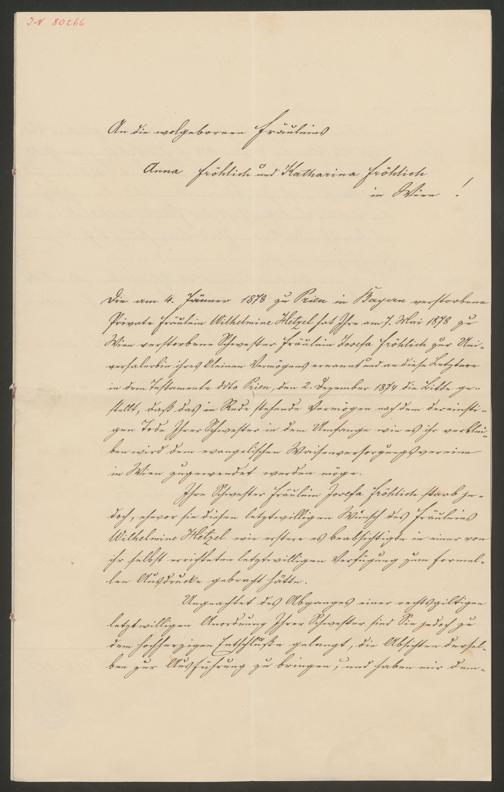 I-N 80266
An die wolgeborenen Fräuleins
Anna Fröhlich und Katharina Fröhlich
in Wien!
Die am 4. Jänner 1878 zu Prien in Bayern verstorbene
Private Fräulein Wilhelmine Hetzel hat Ihre am 7. Mai 1878 zu
Wien verstorbene Schwester Fräulein Josefa Fröhlich zur Uni-
versalerbin ihres kleinen Vermögens ernannt und an diese Letztere
in dem Testamente ddto Prien, den 2. Dezember 1874 die Bitte ge-
stellt, daß das in Rede stehende Vermögen nach dem dereinsti-
gen Tode Ihrer Schwester in dem Umfange wie es ihr verblei-
ben wird dem evangelischen Waisenversorgungsvereine
in Wien zugewendet werden möge.
Ihre Schwester Fräulein Josefa Fröhlich starb je-
doch, ehevor sie diesen letztwilligen Wunsch des Fräuleins
Wilhelmine Hetzel wie erstere es beabsichtigte in einer von
ihr selbst errichteten letztwilligen Verfügung zum formel-
len Ausdrucke gebracht hätte.
Ungeachtet des Abganges einer rechtsgiltigen
letztwilligen Anordnung Ihrer Schwester sind Sie jedoch zu
dem hochherzigen Entschluße gelangt, die Absichten dersel-
ben zur Ausführung zu bringen, und haben mir dem-